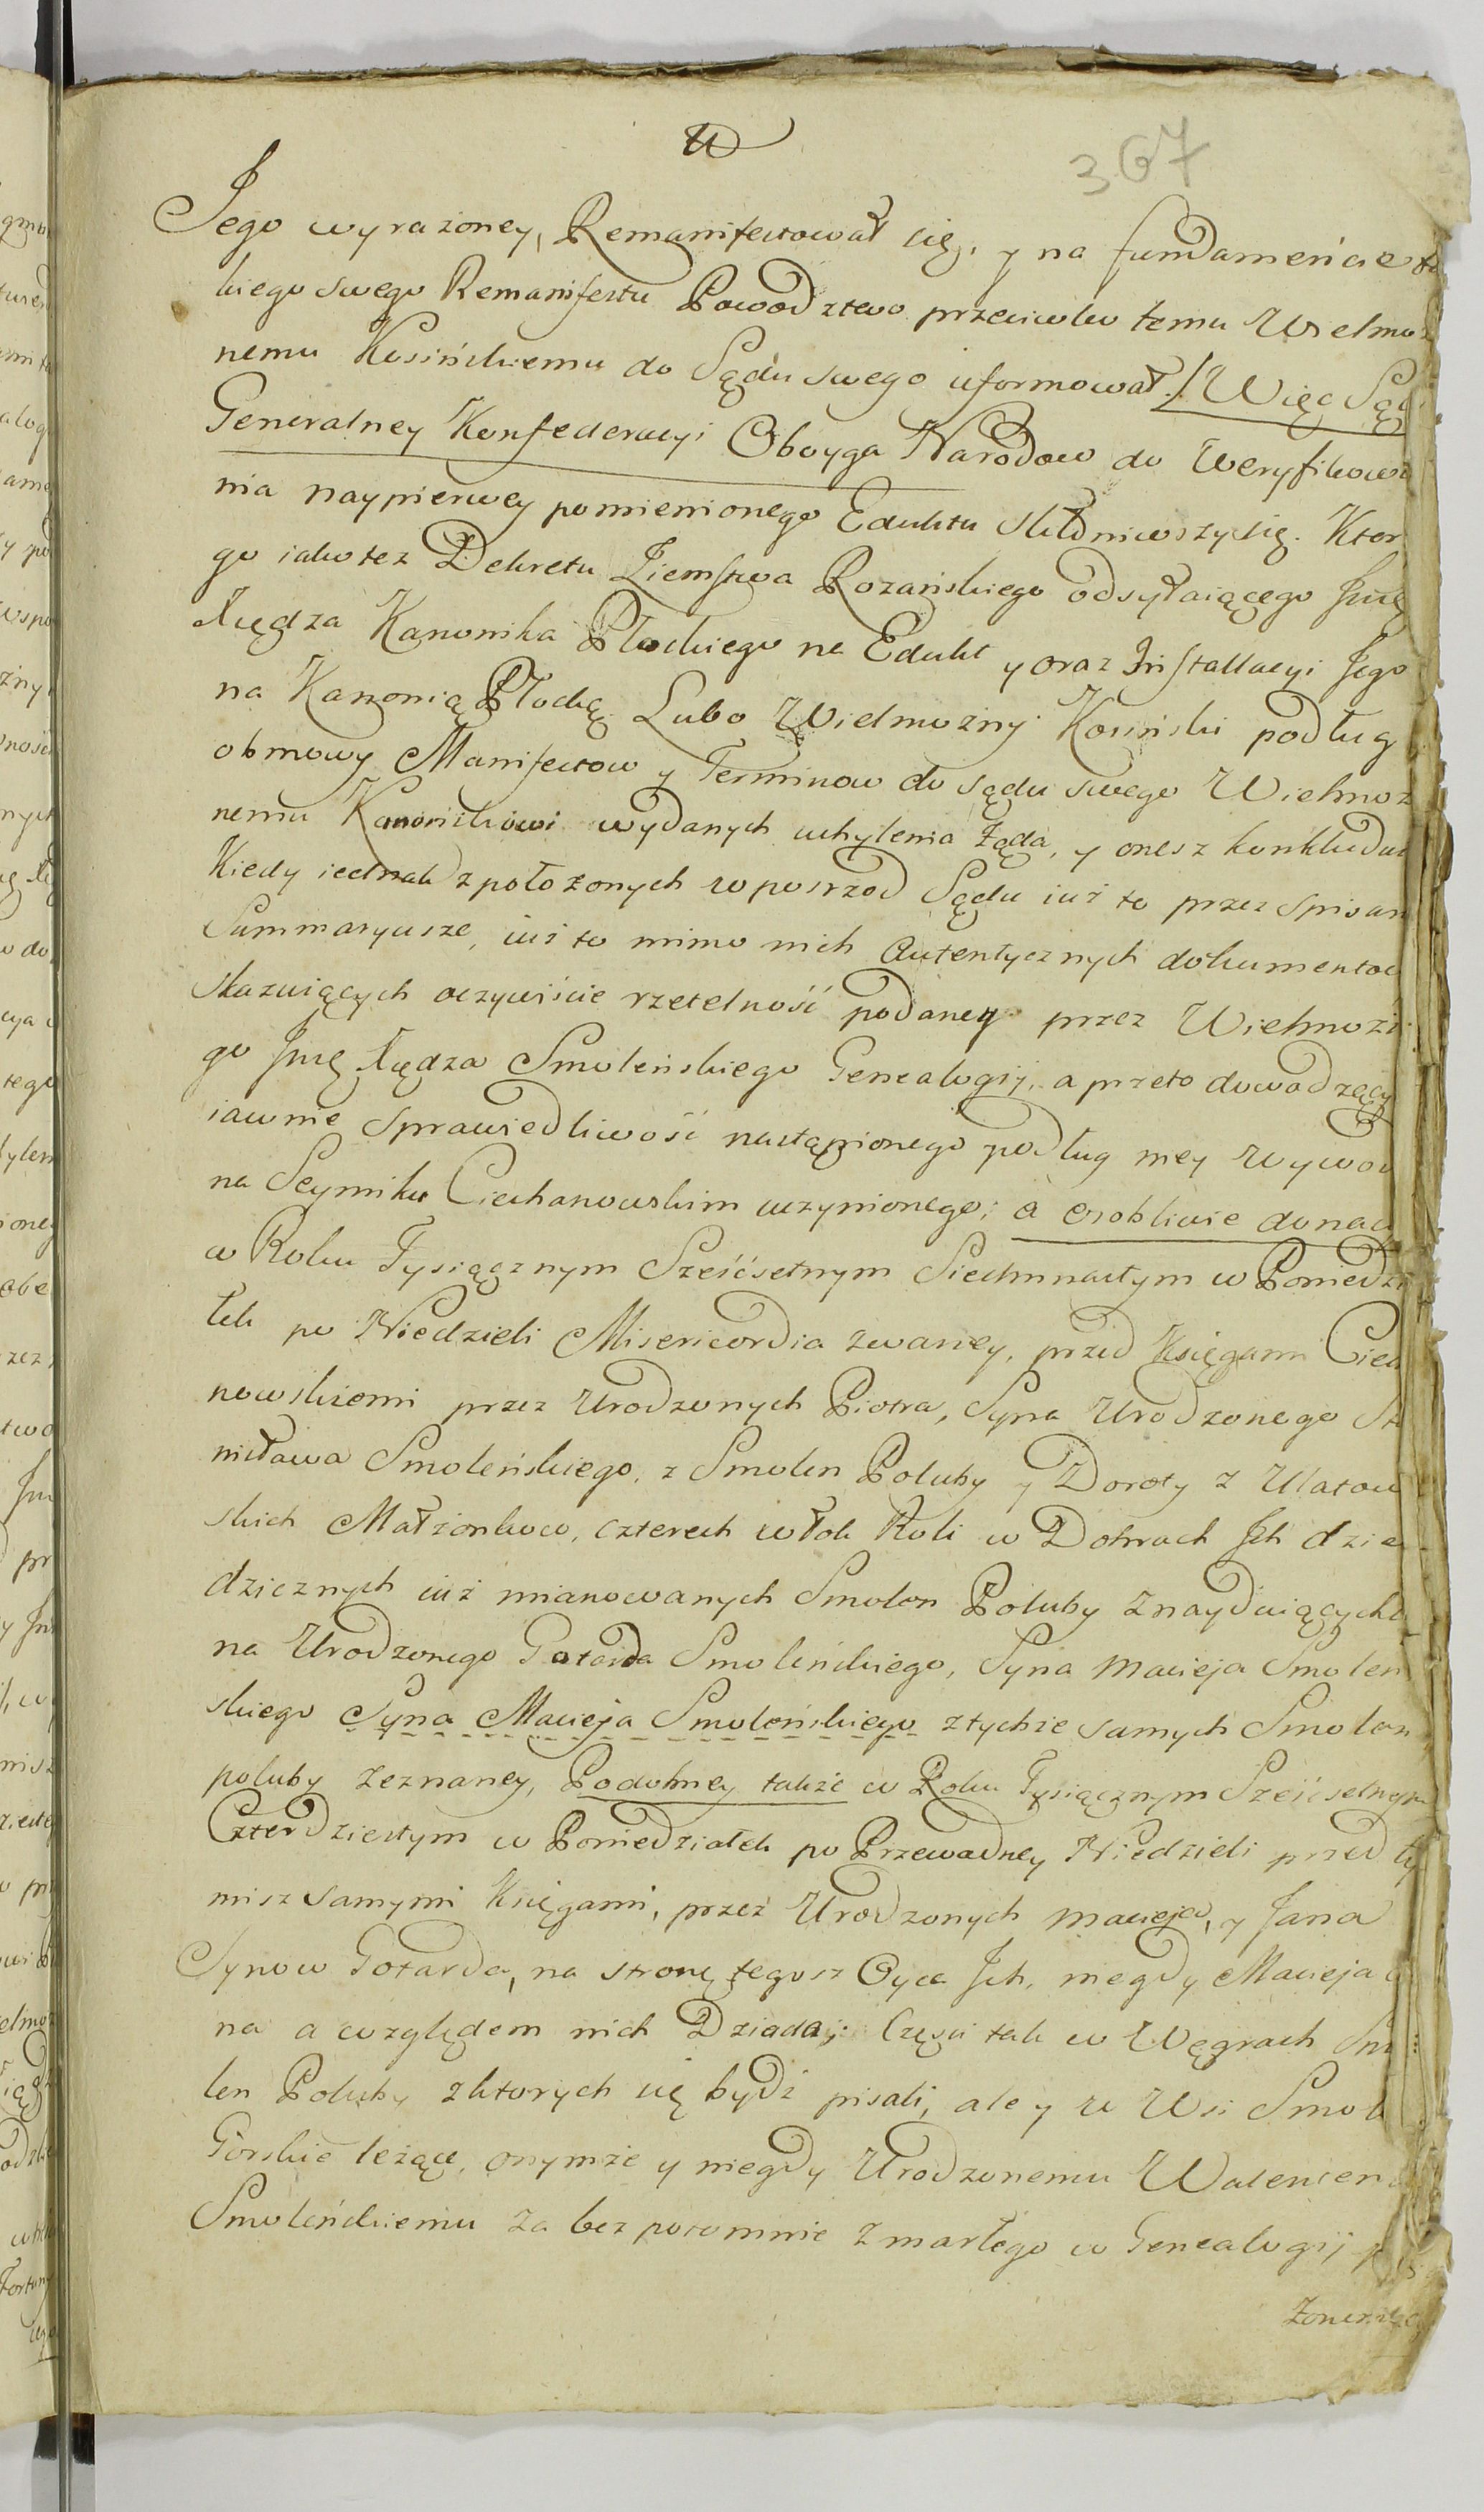 367
Jego wyrażoney, Remanifestował się, y na fundamencie ta
kiego swego Remanifestu Powodztwo przeciwko temu Wielmoż
nemu Kosińskiemu do Sądu swego uformował./ Więc Sąd
Generalney Konfederacyi Oboyga Narodow do Weryfikowa
nia naypierwey pomienionego Eduktu skłoniwszy się. Ktor
go iako tez Dekretu Ziemstwa Rozańskiego odsyłaiącego Jmę
Xiędza Kanonika Płockiego na Edukt y oraz Jnstallacyi Jego
na Kanonią Płocką. Lubo Wielmożny Kosiński podług
obmowy Manifestow y Terminow do sądu swego Wielmoż
nemu Kanonikowi wydanych uchylenia żąda, y onesz konkluduie
Kiedy iednak z położonych w posrzod Sądu iuż to przez spisan
Summaryusze, iuż to mimo nich Autentycznych dokumentow
skazuiących oczywiście rzetelność podaney przez Wielmożn
go Jmę Xiędza Smoleńskiego Genealogij, a przeto dowodzący
iawnie sprawiedliwość nastąpionego podług niey Wywodu
na Seymiku Ciechanowskim uczynionego; a osobliwie donacyi
w Roku Tysiącznym Sześćsetnym Siedmnastym w Poniedzia
łek po Niedzieli Misericordia zwaney, przed Księgami Ciecha
nowskiemi przez Urodzonych Piotra, Syna Urodzonego Sta
nisława Smoleńskiego, z Smolen Poluby y Doroty z Ulatow
skich Małżonkow, czterech włok Roli w Dobrach Jch dzie
dzicznych iuż mianowanych Smolen Poluby Znayduiących
na Urodzonego Gotarda Smoleńskiego, Syna Macieja Smoleń
skiego Syna Macieja Smoleńskiego z tychże samych Smolen
poluby zeznaney, Podobney także w Roku Tysiącznym Sześćsetnym
Czterdziestym w Poniedziałek po Przewodney Niedzieli przed ty
misz samymi Księgami, przez Urodzonych Macieja, y Jana
Synow Gotarda, na stronę tegosz Oyca Jch, niegdy Macieja
na a względem nich Dziada; Części tak w Węgrach Smo
len Poluby z ktorych się bydź pisali, ale y we Wsi Smol
Górskie leżące, onymże y niegdy Urodzonemu Walentem
Smoleńskiemu za bez potomnie zmarłego w Genealogij